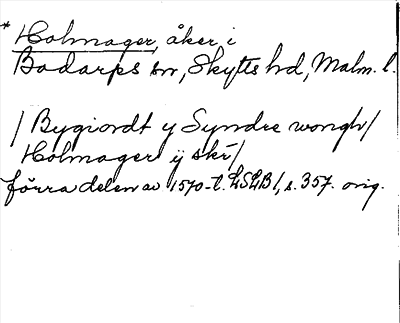 * Holmager, åker i
Bodarps sn, Skytts hd, Malm. l.
/ Bygiordt y Syndre wongh/
Holmager ij skī/
förra delen av 1570-t. LSLB 1, s. 357. orig.